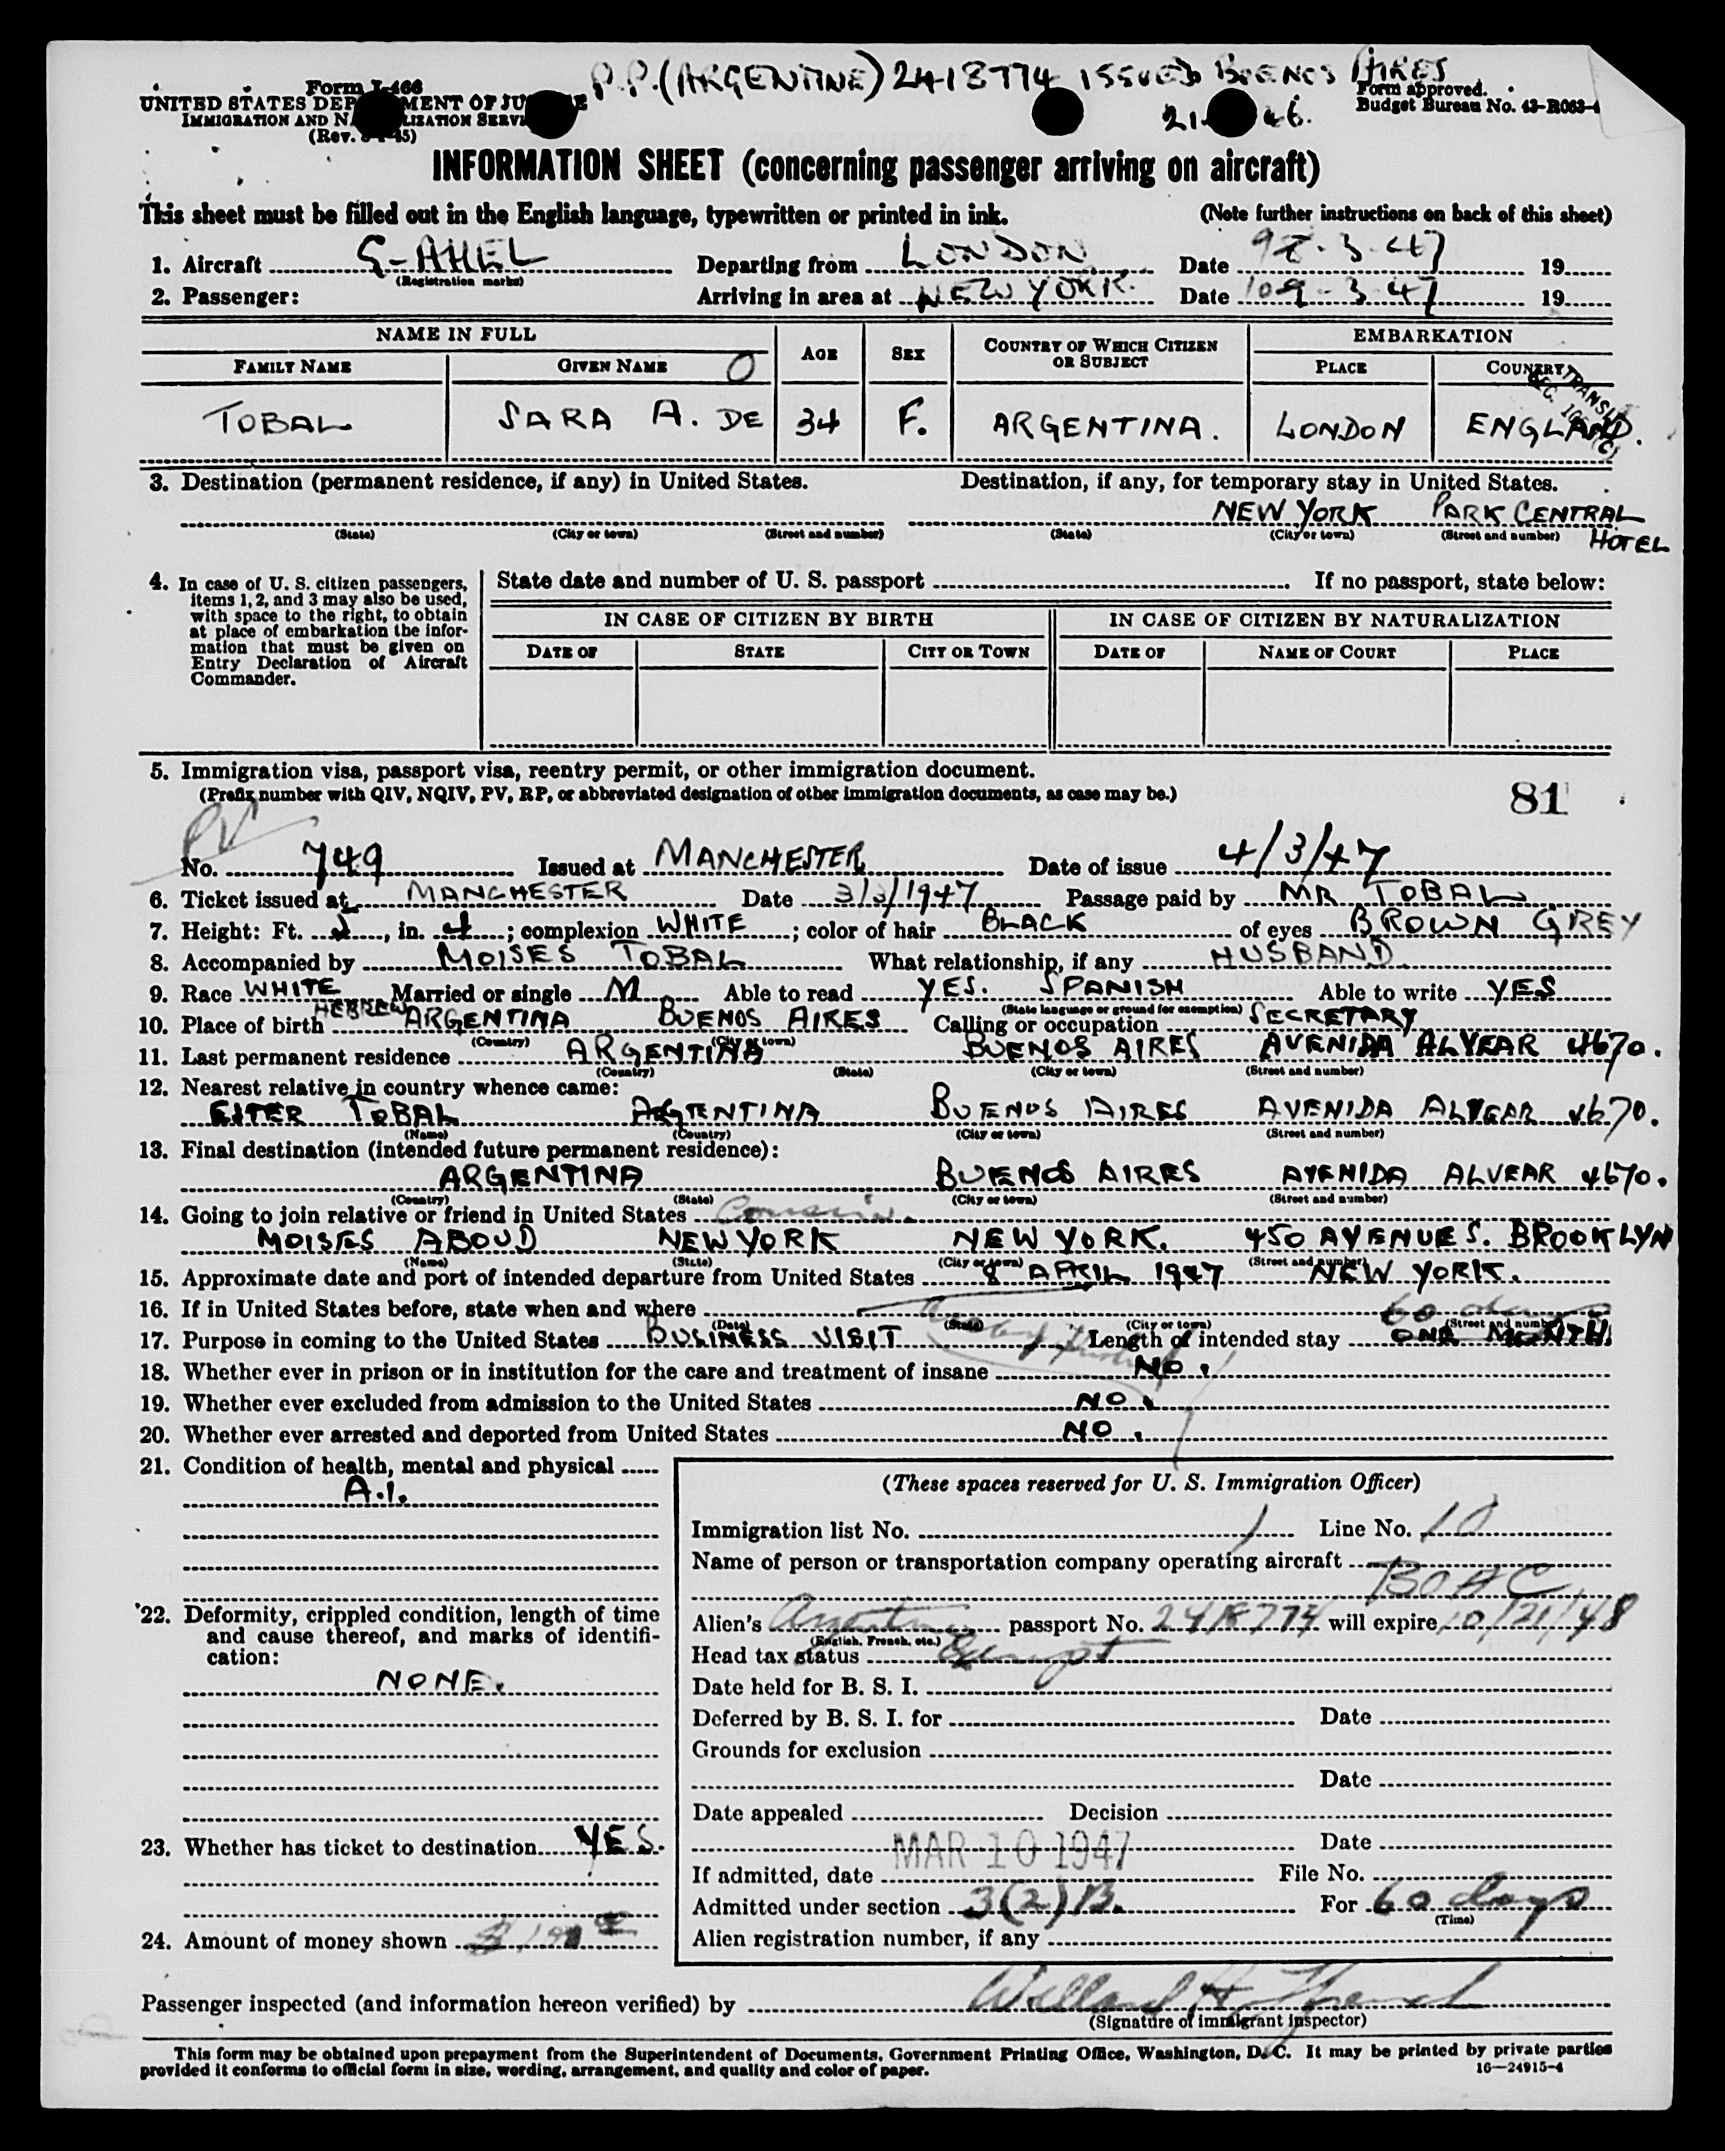 P.P. (ARGENTINE) 2418774 ISSUED BUENOS AIRES
Form I-466
UNITED STATES DEP MENT OF JU
IMMIGRATION AND NA LIZATION SERVI
(Rev. 45)
21. 46.
Form approved.
Budget Bureau No. 43-R063-4
INFORMATION SHEET (concerning passenger arriving on aircraft)
This sheet must be filled out in the English language, typewritten or printed in ink. (Note further instructions on back of this sheet)
1. Aircraft G-AHEL Departing from LONDON Date 9 8-3-47 19
(Registration marks)
2. Passenger: Arriving in area at NEW YORK. Date 10 9-3-47 19
NAME IN FULL AGE SEX COUNTRY OF WHICH CITIZEN OR SUBJECT EMBARKATION
FAMILY NAME GIVEN NAME O PLACE COUNTRY
TRANSIT
SEC. (C)
TOBAL SARA A. DE 34 F. ARGENTINA. LONDON ENGLAND.
3. Destination (permanent residence, if any) in United States. Destination, if any, for temporary stay in United States.
NEW YORK PARK CENTRAL HOTEL
(State) (City or town) (Street and number) (State) (City or town) (Street and number)
4. In case of U. S. citizen passengers,
items 1, 2, and 3 may also be used,
with space to the right, to obtain
at place of embarkation the infor-
mation that must be given on
Entry Declaration of Aircraft
Commander.
State date and number of U. S. passport If no passport, state below:
IN CASE OF CITIZEN BY BIRTH IN CASE OF CITIZEN BY NATURALIZATION
DATE OF STATE CITY OR TOWN DATE OF NAME OF COURT PLACE
5. Immigration visa, passport visa, reentry permit, or other immigration document.
(Prefix number with QIV, NQIV, PV, RP, or abbreviated designation of other immigration documents, as case may be.)
81
PV
No. 749 Issued at MANCHESTER Date of issue 4/3/47
6. Ticket issued at MANCHESTER Date 3/3/1947 Passage paid by MR TOBAL
7. Height: Ft. 5, in. 4; complexion WHITE; color of hair BLACK of eyes BROWN GREY
8. Accompanied by MOISES TOBAL What relationship, if any HUSBAND
9. Race WHITE HEBREW Married or single M Able to read YES. SPANISH Able to write YES
(State language or ground for exemption)
10. Place of birth ARGENTINA BUENOS AIRES Calling or occupation SECRETARY
(Country) (City or town)
11. Last permanent residence ARGENTINA BUENOS AIRES AVENIDA ALVEAR 4670.
(Country) (State) (City or town) (Street and number)
12. Nearest relative in country whence came:
ESTER TOBAL ARGENTINA BUENOS AIRES AVENIDA ALVEAR 4670.
(Name) (Country) (City or town) (Street and number)
13. Final destination (intended future permanent residence):
ARGENTINA BUENOS AIRES AVENIDA ALVEAR 4670.
(Country) (State) (City or town) (Street and number)
14. Going to join relative or friend in United States Cousin.
MOISES ABOUD NEW YORK NEW YORK. 450 AVENUE S. BROOKLYN
(Name) (State) (City or town) (Street and number)
15. Approximate date and port of intended departure from United States 8 APRIL 1947 NEW YORK.
16. If in United States before, state when and where
(Date) (State) (City or town) (Street and number)
60 days
17. Purpose in coming to the United States BUSINESS VISIT Length of intended stay ONE MONTH
18. Whether ever in prison or in institution for the care and treatment of insane NO.
19. Whether ever excluded from admission to the United States NO.
20. Whether ever arrested and deported from United States NO.
21. Condition of health, mental and physical
A.1.
22. Deformity, crippled condition, length of time
and cause thereof, and marks of identifi-
cation:
NONE.
23. Whether has ticket to destination YES.
24. Amount of money shown
(These spaces reserved for U. S. Immigration Officer)
Immigration list No. 1 Line No. 10
Name of person or transportation company operating aircraft
BOAC
Alien's Argentine passport No. 2418774 will expire 10/21/48
(English, French, etc.)
Head tax status Exempt
Date held for B. S. I.
Deferred by B. S. I. for Date
Grounds for exclusion
Date
Date appealed Decision
Date
If admitted, date MAR 10 1947 File No.
Admitted under section 3(2)B. For 60 days
(Time)
Alien registration number, if any
Passenger inspected (and information hereon verified) by Willard H.
(Signature of immigrant inspector)
This form may be obtained upon prepayment from the Superintendent of Documents, Government Printing Office, Washington, D. C. It may be printed by private parties
provided it conforms to official form in size, wording, arrangement, and quality and color of paper. 16—24915-4